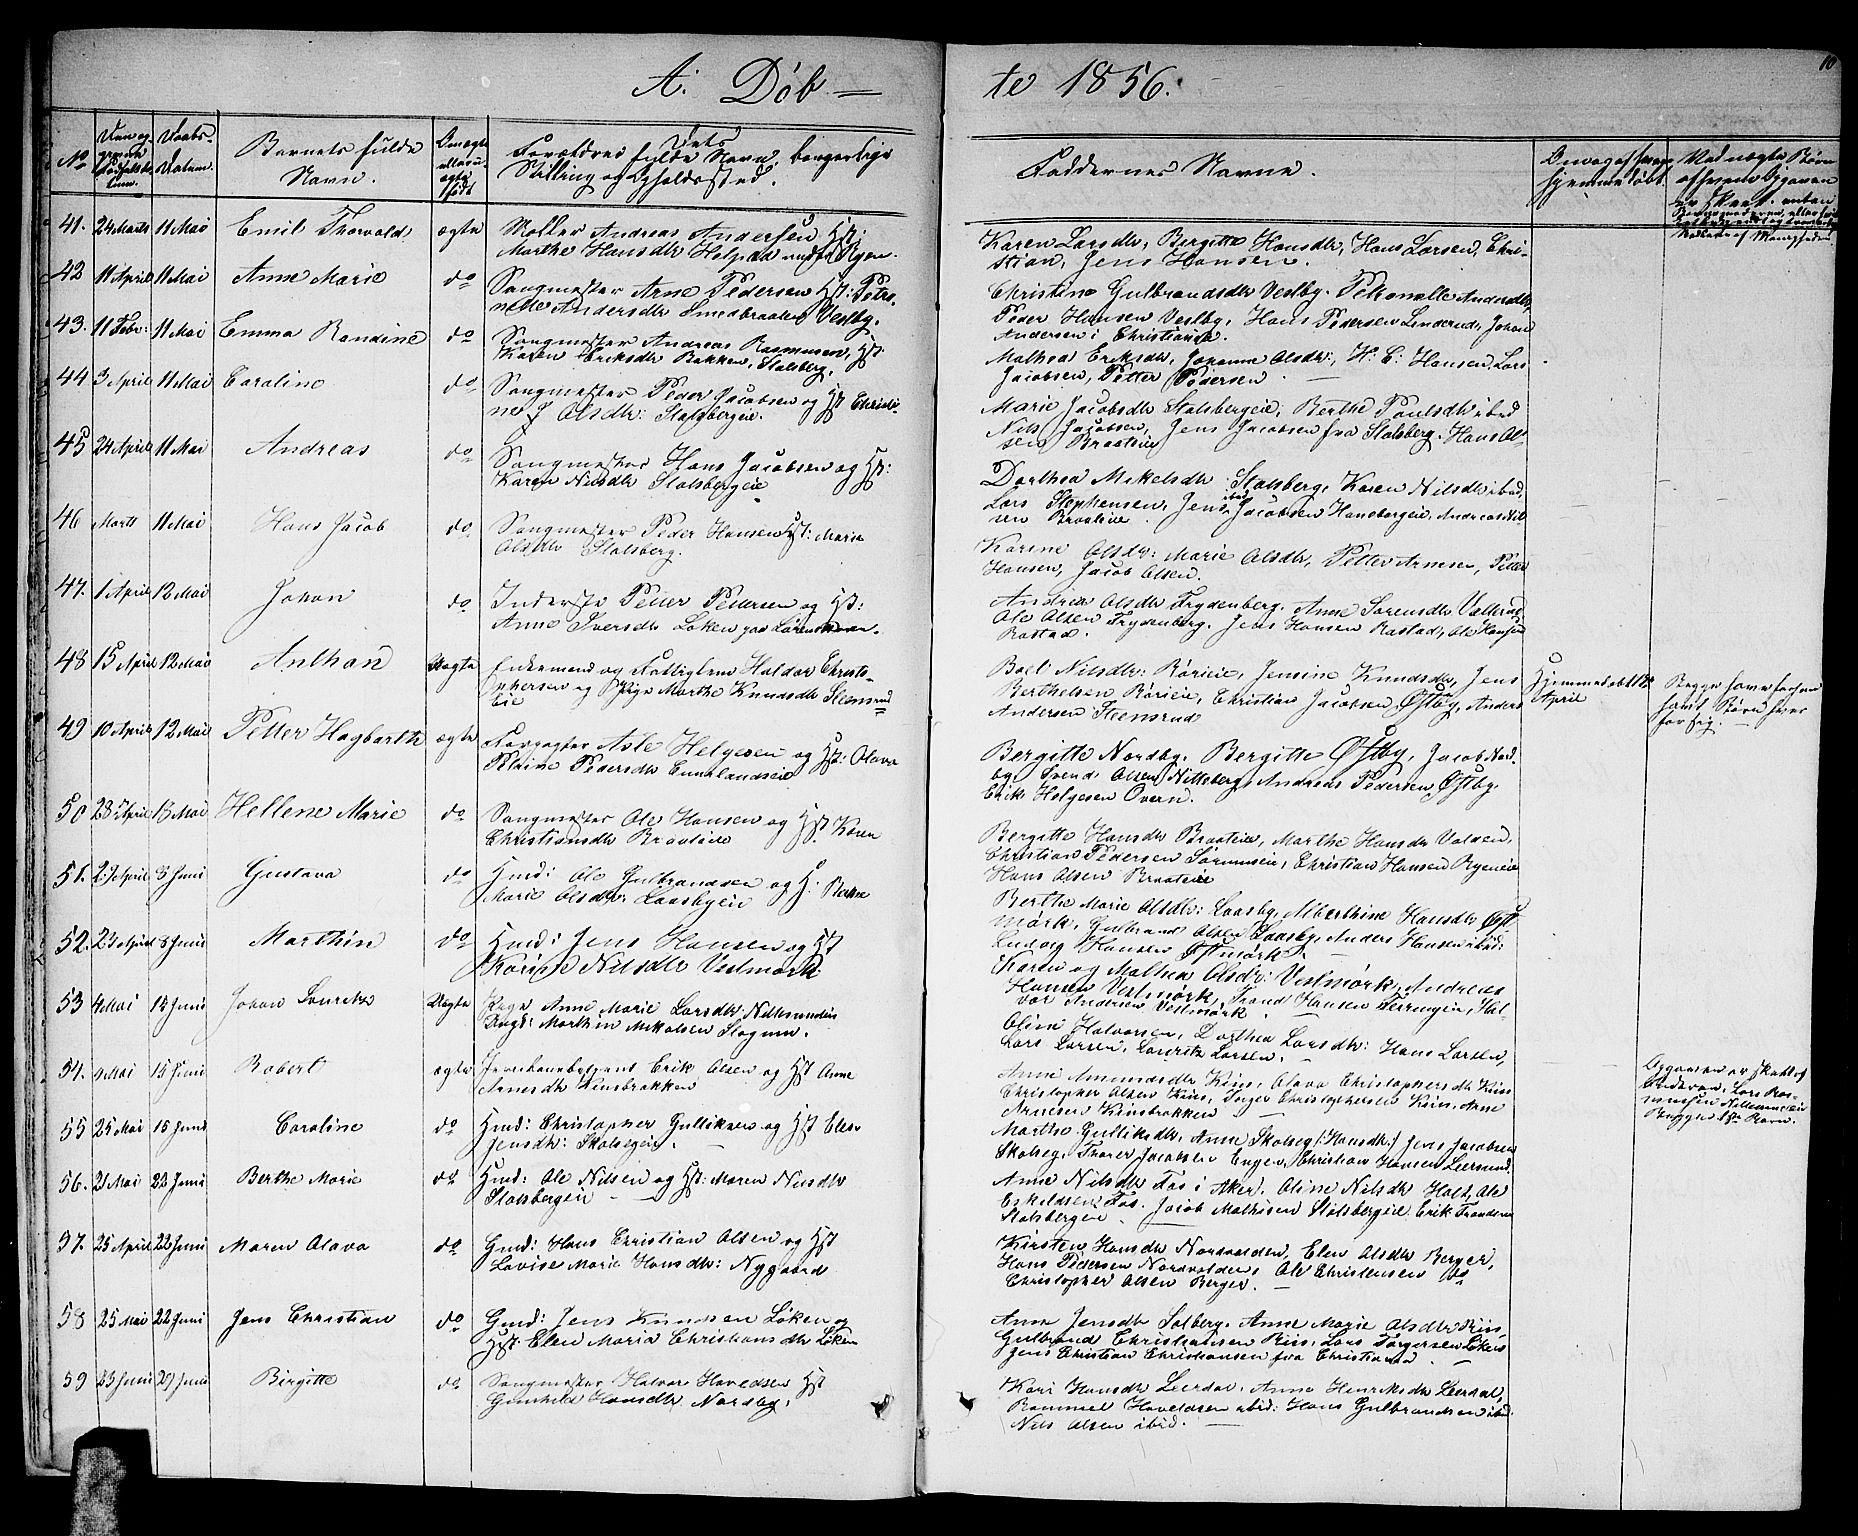 A. Døb — te 1856.
10
No
Barnets fulde Navn.
Forældres fulde Navn, borgerlige Stilling og Opholdssted.
Faddernes Navne.
41. 24 Marts 11 Mai Emil Thorvald ægte Møller Andreas Andersen Hst:
Marthe Hansdtr
Karen Larsdtr, Bergitte Hansdtr, Hans Larsen, Chri-
stian, Jens Hansen.
42 11 April 11 Mai Anne Marie do Sangmester Arne Pedersen Hst: Petro-
nelle Andersdtr Smedbraaten Vestby.
Christine Gulbrandsdtr Vestby. Petronelle Andersdtr,
Peder Hansen Vestby, Hans Pedersen Linderud, Johan
Andersen i Christiania.
43. 11 Febr: 11 Mai Emma Randine do Sangmester Andreas Rasmussen, Hst.
Karen Eriksdtr Bakken, Stalsberg.
Mathea Eriksdtr, Johanne Olsdtr:, H: C: Hansen, Lars
Jacobsen, Petter Pedersen
44 3 April 11 Mai Caroline do Sangmester Peder Jacobsen og Hst Christi-
ne Olsdtr: Stalsbergeie.
Marie Jacobsdtr Stalsbergeie, Berthe Paulsdtr ibid
Nils Jacobsen, Jens Jacobsen fra Stalsberg. Hans Ol-
sen Braateie
45 24 April 11 Mai Andreas do Sangmester Hans Jacobsen og Hst:
Karen Nilsdtr Stalsbergeie
Dorthea Mikelsdtr Stalsberg, Karen Nilsdtr ibid,
Lars Stephensen, ibid Jens Jacobsen Hansbergeie, Andreas Nil-
sen Braateie.
46 Marts 11 Mai Hans Jacob do Sangmester Peder Hansen Hst: Marie
Olsdtr Stalsberg.
Karine Olsdtr: Marie Olsdtr, Petter Arnesen, Petter
Hansen, Jacob Olsen.
47. 1 April 12 Mai Johan do Inderste Petter Pettersen og Hst:
Anne Iversdtr Løken paa Lørenskoven.
Andrea Olsdtr Frydenberg. Anne Sørensdtr
Ole Olsen Frydenberg. Jens Hansen Rastad, Ole Hansen
Rastad.
48 15 April 12 Mai Anthan Uægte Enkemand og Fattiglem Haldor Christo-
phersen og Pige Marthe Knudsdtr Stemsrud
eie
Boel Nilsdtr: Rørieie, Jensine Knudsdtr, Jens
Berthelsen Rørieie, Christian Jacobsen Østby, Anders
Andersen Steemsrud
Hjemmedøbt
April
Begge have forhen
havt Børn hver
for sig.
49 10 April 12 Mai Petter Hagbarth ægte Forpagter Asle Helgesen og Hst: Olava
Petrine Pedersdtr
Bergitte Nordby, Bergitte Østby, Jacob Nord-
by, Svend Olsen Nitteberg, Andreas Pedersen Østby,
Erik Helgesen Overn.
50 28 April 13 Mai Hellene Marie do Sangmester Ole Hansen og Hst Karen
Christiansdtr Braateie
Bergitte Hansdtr Braateie, Marthe Hansdtr Valden,
Christian Pedersen, Christian Hansen Ryeneie
Hans Olsen Braateie
51. 27 April 8 Juni Gustava do Hmd: Ole Gulbrandsen og H:
Marie Olsdtr: Laasbyeie
Berthe Marie Olsdtr: Laasby, Alberthine Hansdtr Øst-
mørk, Gulbrand Olsen Laasby, Anders Hansen ibid:
Ludvig Hansen Østmørk.
52. 23 April 8 Juni Marthin do Hmd: Jens Hansen og Hst
Karine Nilsdtr Vestmørk
Karen og Mathea Olsdtr: Vestmørk, Andreas
Hansen Vestmørk, Trond Hansen, Hal-
vor Andersen Vestmørk.
53 4 Mai 15 Juni Johan Lauritz Uægte Pige Anne Marie Larsdtr
Ungk: Marthin Mikalsen Slagum.
Oline Halvorsen, Dorthea Larsdtr: Hans Larsen,
Lars Larsen, Lauritz Larsen.
54. Mai 15 Juni Robert ægte Jernbanebetjent Erik Olsen og Hst Anne
Arnesdtr Kinsbrakken
Anne Amundsdtr Kins, Olava Christophersdtr Kins
Christopher Olsen Kins, Torger Christophersen Kins, Arne
Arnesen Kinsbrakken
Opgaven er skeet af
55 25 Mai 15 Juni Caroline do Hmd: Christopher Gulliksen og Hst Elen
Jensdtr: Skolsegeie.
Marthe Gulliksdtr, Anne Skolseg (Hansdtr) Jens Jacobsen
Skolseg, Thorer Jacobsen Engen, Christian Hansen Leersund
56. 2 Mai 22 Juni Berthe Marie do Hmd: Ole Nilsen og Hst: Maren Nilsdtr
Stalsbergeie
Anne Nilsdtr Fos i Aker. Oline Nilsdtr Holt, Ole
Eskildsen Fos. Jacob Mathisen Stalsbergeie. Erik Trondsen
Stalsbergeie.
57. 25 April 22 Juni Maren Olava do Gmd: Hans Christian Olsen og Hst
Lovise Marie Hansdtr: Nygaard
Kirsten Hansdtr Nordvolden, Elen Olsdtr Berger,
Hans Pedersen Nordvolden, Ole Christensen do
Christopher Olsen Berger.
58 25 Mai 22 Juni Jens Christian do Gmd: Jens Knudsen Løken og
Hst: Elen Maria Christiansdtr Løken
Anne Jensdtr Solberg. Anne Marie Olsdtr Riis,
Gulbrand Christiansen Riis, Lars Torgersen Løken
Jens Christian Christiansen fra Christiania.
59 23 Juni 29 Juni Birgitte do Sangmester Halvor Havelsen Hst
Gunhild Hansdtr Nordby.
Kari Hansdtr Leerdal. Anne Henriksdtr Leerdal,
Rommel Havelsen ibid: Hans Gulbrandsen ibid.
Nils Olsen ibid.